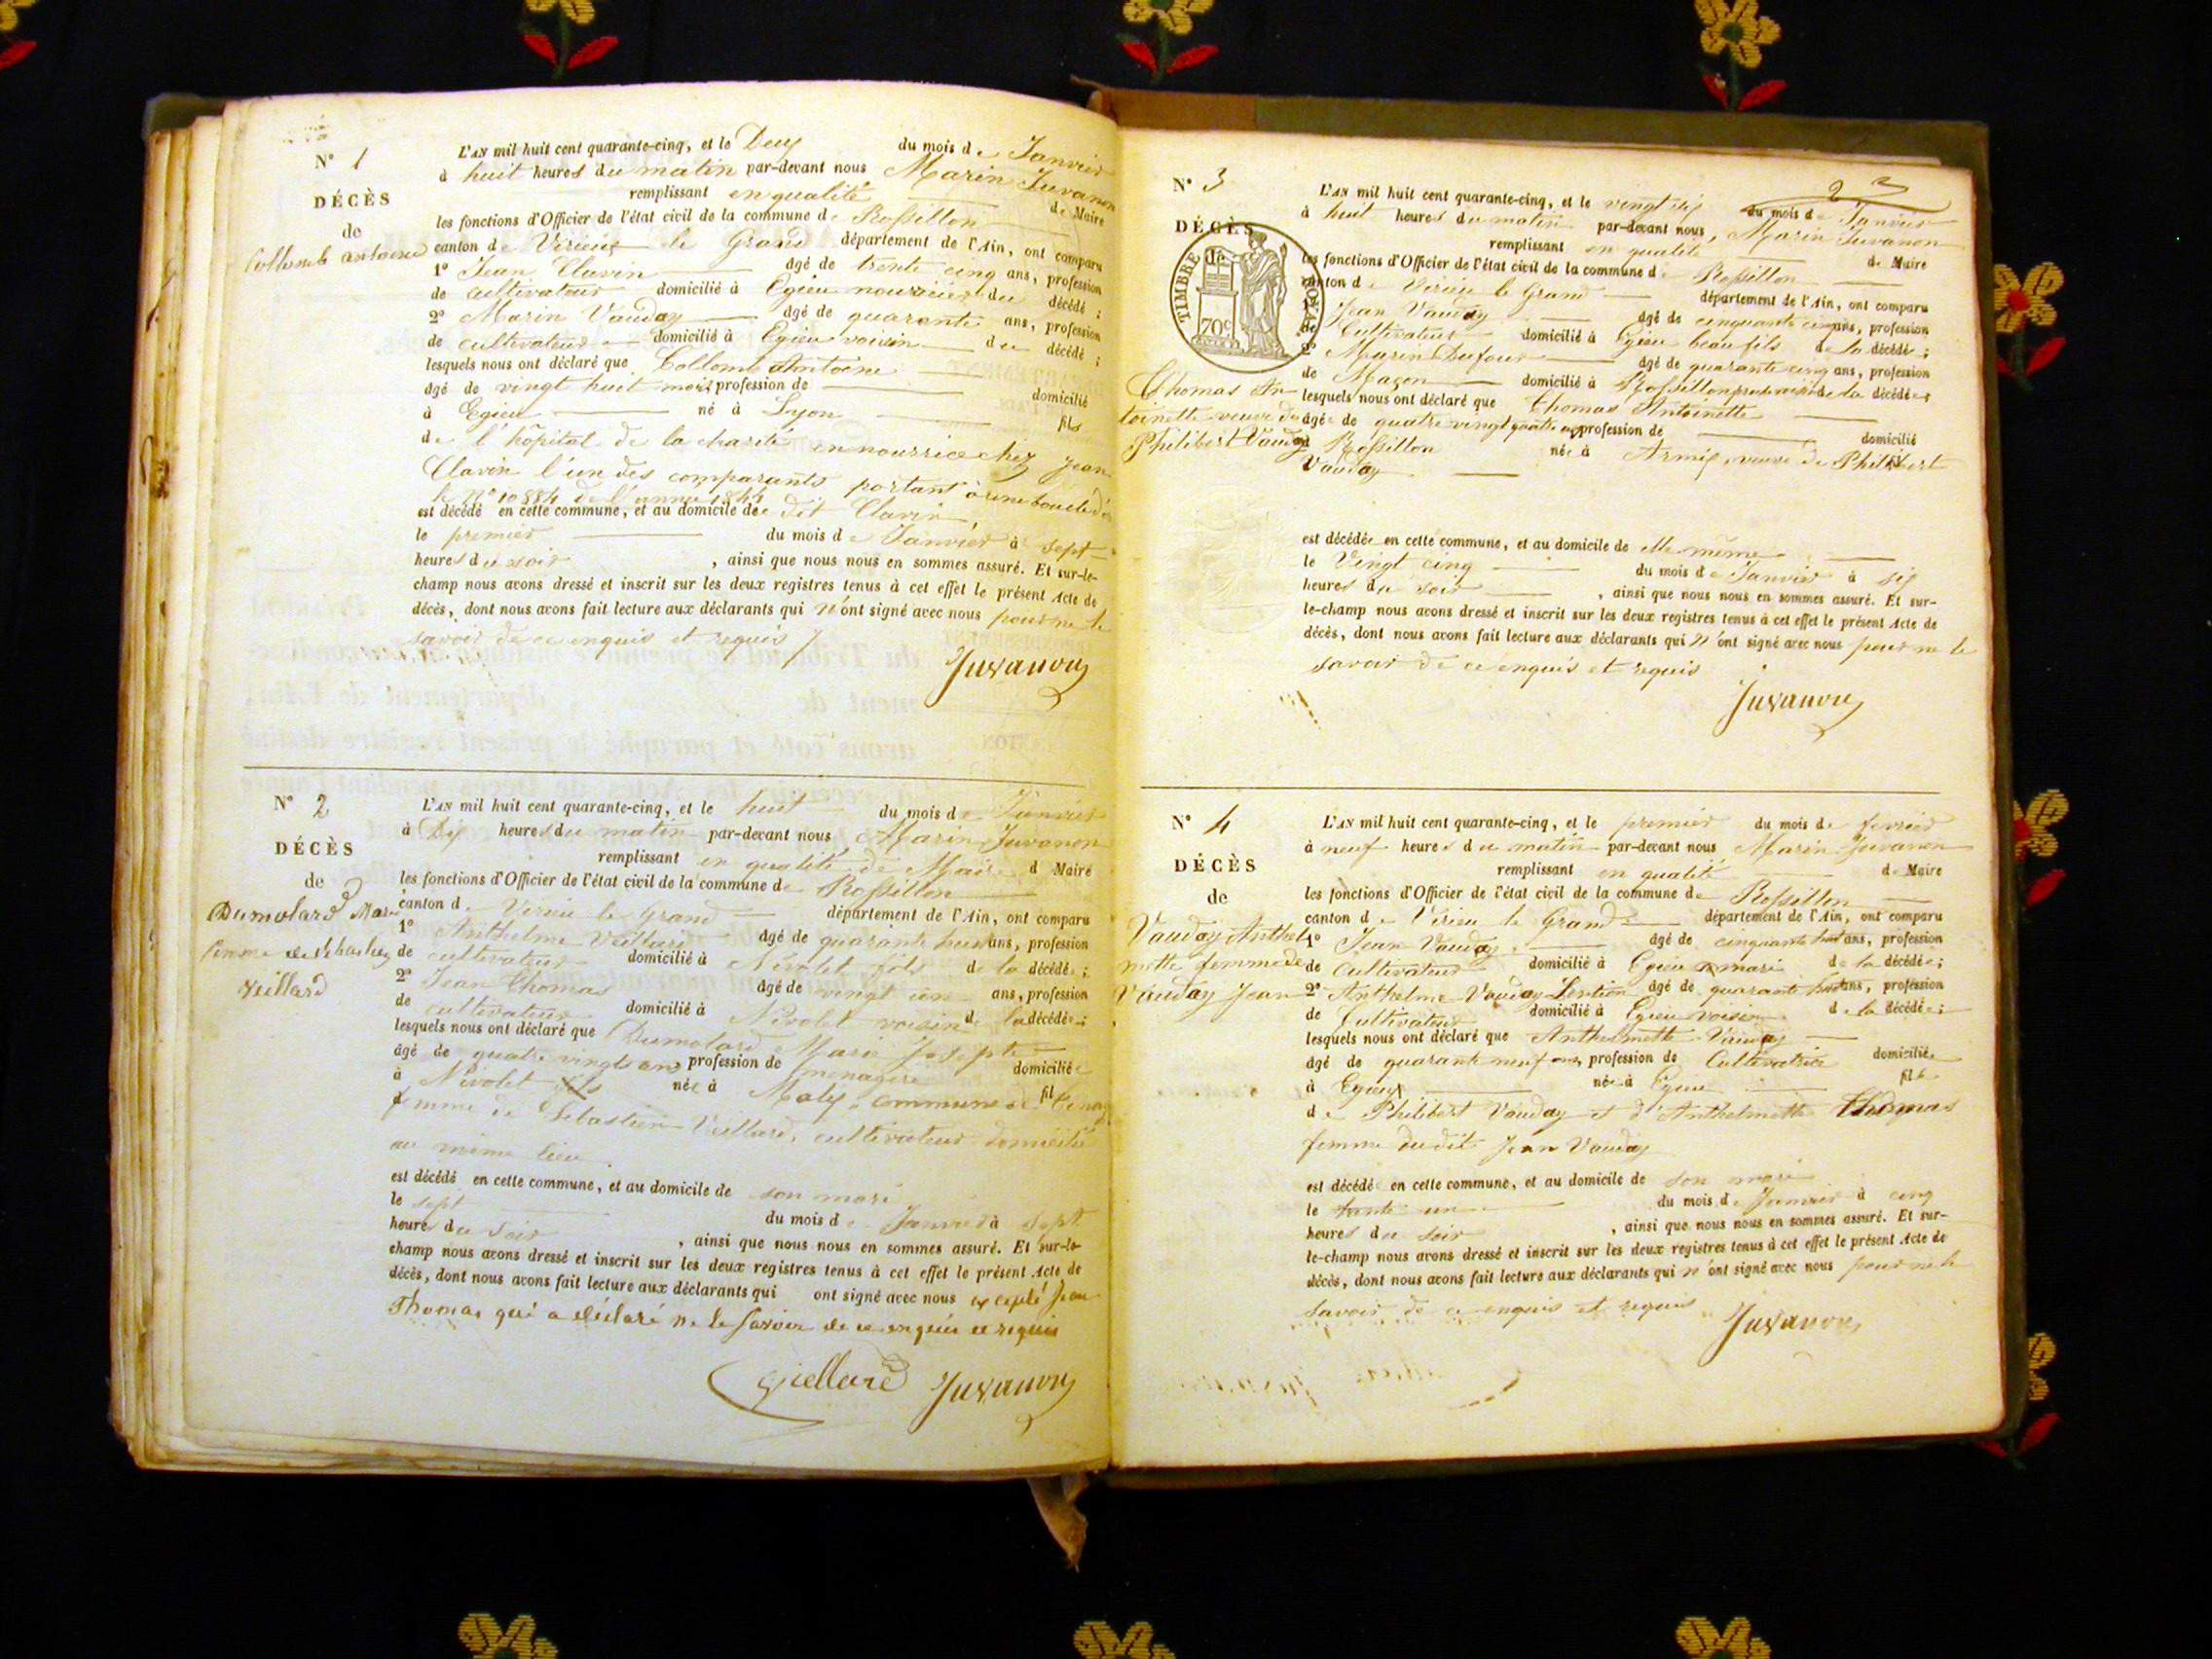 N° 1
DÉCÈS
de
Collomb antoine
L'AN mil huit cent quarante-cinq, et le Deux du mois de Janvier
à huit heures du matin par-devant nous Marin Juvanon
remplissant en qualité de Maire
les fonctions d'Officier de l'état civil de la commune de Rossillon
canton de Virieu le Grand département de l'Ain, ont comparu
1° Jean Clavin âgé de trente cinq ans, profession
de cultivateur domicilié à Egieu nourricier du décédé ;
2° Marin Vauday âgé de quarante ans, profession
de cultivateur domicilié à Egieu voisin du décédé ;
lesquels nous ont déclaré que Collomb Antoine
âgé de vingt huit mois profession de domicilié
à Egieu né à Lyon fils
de l'hôpital de la charité en nourrice chez Jean
Clavin l'un des comparants portant à une boucle d'
le n° 10884 de l'année 1844
est décédé en cette commune, et au domicile de dit Clavin
le premier du mois de Janvier à sept
heures du soir , ainsi que nous nous en sommes assuré. Et sur-le-
champ nous avons dressé et inscrit sur les deux registres tenus à cet effet le présent Acte de
décès, dont nous avons fait lecture aux déclarants qui n'ont signé avec nous pour ne le
savoir de ce enquis et requis
Juvanon
N° 2
DÉCÈS
de
Dumolard Marie
femme de Sebastien
Veillard
L'AN mil huit cent quarante-cinq, et le huit du mois de Janvier
à Dix heures du matin par-devant nous Marin Juvanon
remplissant en qualité de Maire d Maire
les fonctions d'Officier de l'état civil de la commune de Rossillon
canton de Virieu le Grand département de l'Ain, ont comparu
1° Anthelme Veillard âgé de quarante huit ans, profession
de cultivateur domicilié à Nivolet fils de la décédée ;
2° Jean Thomas âgé de vingt un ans, profession
de cultivateur domicilié à Nivolet voisin de la décédée ;
lesquels nous ont déclaré que Dumolard Marie Josepte
âgé de quatre vingts ans profession de menagère domiciliée
à Nivolet née à commune de fil
femme de Sebastien Veillard, cultivateur domicilié
au même lieu
est décédé en cette commune, et au domicile de son mari
le sept du mois de Janvier à sept
heure du soir , ainsi que nous nous en sommes assuré. Et sur-le-
champ nous avons dressé et inscrit sur les deux registres tenus à cet effet le présent Acte de
décès, dont nous avons fait lecture aux déclarants qui ont signé avec nous excepté Jean
Thomas qui a déclaré ne le savoir de ce enquis et requis
Veillard Juvanon
N° 3
DÉCÈS
de
TIMBRE ROYAL
70c
Thomas An-
toinette veuve de
Philibert Vauday
2
L'AN mil huit cent quarante-cinq, et le vingt six du mois de Janvier
à huit heures du matin par-devant nous, Marin Juvanon
remplissant en qualité de Maire
les fonctions d'Officier de l'état civil de la commune de Rossillon
canton de Virieu le Grand département de l'Ain, ont comparu
1° Jean Vauday âgé de cinquante cinq ans, profession
de Cultivateur domicilié à Egieu beau fils de la décédée ;
2° Marin Dufour âgé de quarante cinq ans, profession
de Maçon domicilié à Rossillon de la décédée ;
lesquels nous ont déclaré que Thomas Antoinette
âgée de quatre vingt quatre ans profession de domicilié
à Rossillon née à Armix, veuve de Philibert
Vauday
est décédée en cette commune, et au domicile de elle même
le Vingt cinq du mois de Janvier à six
heures du soir , ainsi que nous nous en sommes assuré. Et sur-
le-champ nous avons dressé et inscrit sur les deux registres tenus à cet effet le présent Acte de
décès, dont nous avons fait lecture aux déclarants qui n'ont signé avec nous pour ne le
savoir de ce enquis et requis
Juvanon
N° 4
DÉCÈS
de
Vauday Anthel-
mette femme de
Vauday Jean
L'AN mil huit cent quarante-cinq, et le premier du mois de fevrier
à neuf heures du matin par-devant nous Marin Juvanon
remplissant en qualité de Maire
les fonctions d'Officier de l'état civil de la commune de Rossillon
canton de Virieu le Grand département de l'Ain, ont comparu
1° Jean Vauday âgé de cinquante huit ans, profession
de cultivateur domicilié à Egieu mari de la décédée ;
2° Anthelme Vauday âgé de quarante huit ans, profession
de Cultivateur domicilié à Egieu voisin de la décédée ;
lesquels nous ont déclaré que Anthelmette Vauday
âgé de quarante neuf ans profession de Cultivatrice domiciliée
à Egieu née à Egieu fille
de Philibert Vauday et d'Anthelmette Thomas
femme du dit Jean Vauday
est décédé en cette commune, et au domicile de son mari
le trente un du mois de Janvier à cinq
heures du soir , ainsi que nous nous en sommes assuré. Et sur-
le-champ nous avons dressé et inscrit sur les deux registres tenus à cet effet le présent Acte de
décès, dont nous avons fait lecture aux déclarants qui n'ont signé avec nous pour ne le
savoir de ce enquis et requis
Juvanon